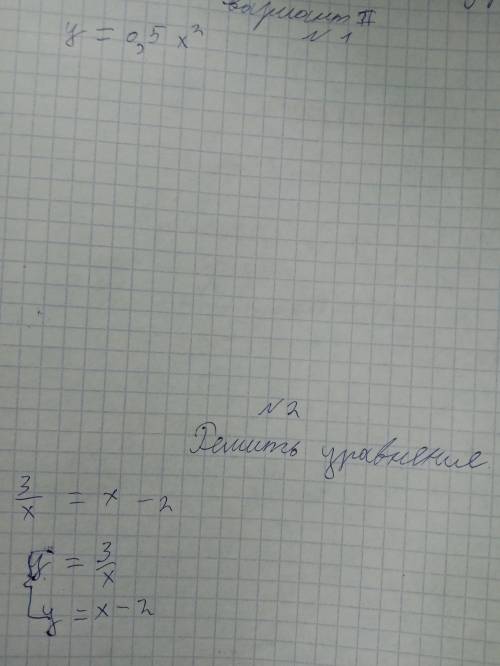 вариант II
y = 0,5 x²
N 1
N 2
Решить уравнение
3/x = x - 2
{ y = 3/x
y = x - 2